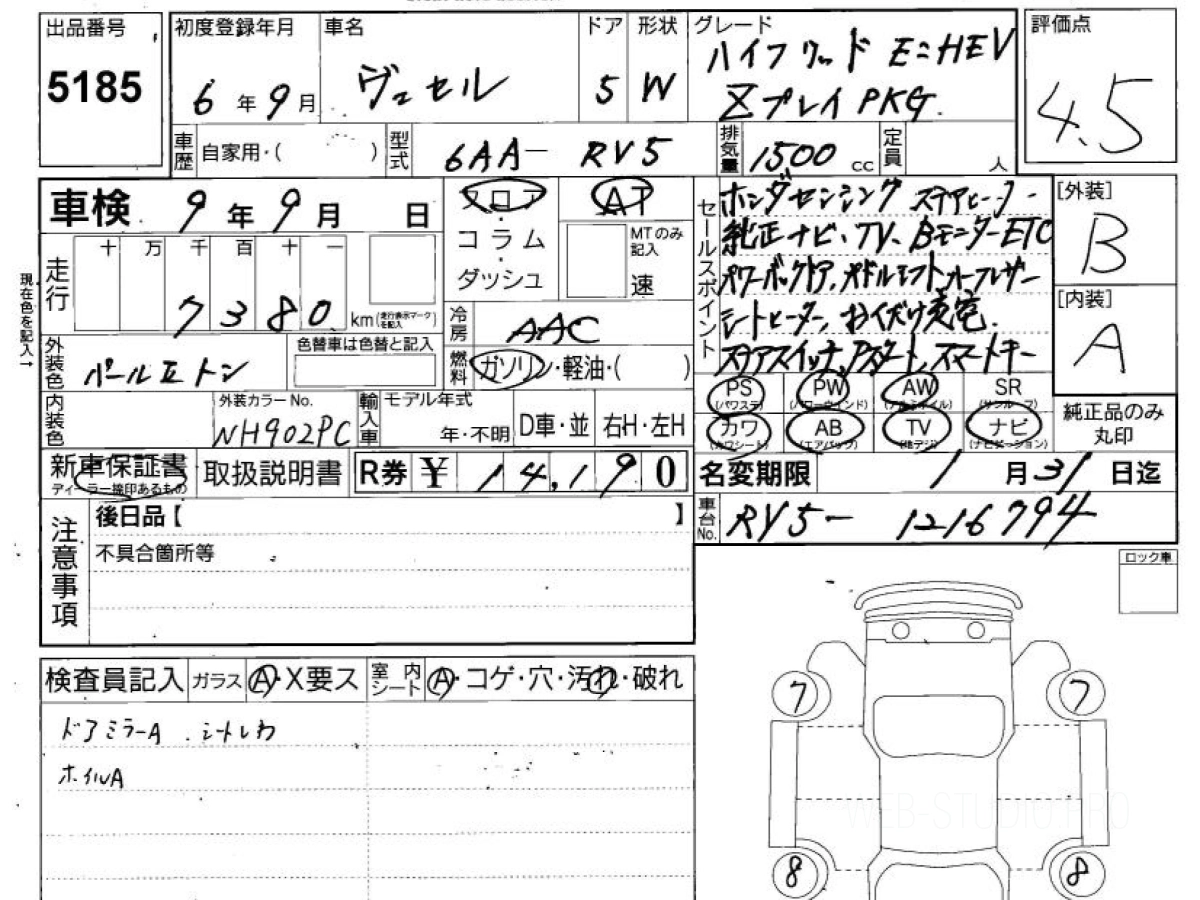 出品番号
5185
初度登録年月
6年9月
車名
ヴェゼル
ドア
5
形状
W
グレード
ハイブリッド E:HEV
Z プレイPKG.
評価点
4.5
車歴
自家用・( )
型式
6AA- RV5
排気量
1500 cc
定員
人
車検 9年9月 日
フロア・コラム・ダッシュ
AT
MTのみ記入
速
セールスポイント
ホンダセンシング ステアヒーター
純正ナビ、TV、Bモニター ETC
シートヒーター、おくだけ充電.
ステアスイッチ, Pスタート, スマートキー
[外装]
B
[内装]
A
現在色を記入→
走行
十 万 千 百 十 一
7380 km (走行表示マークを記入)
冷房
AAC
外装色
パールIIトン
色替車は色替と記入
燃料
ガソリン・軽油・( )
内装色
外装カラーNo.
NH902PC
輸入車
モデル年式
年・不明
D車・並
右H・左H
PS (パワステ)
PW (パワーウインド)
AW (アルミホイル)
SR (サンルーフ)
カワ (カワシート)
AB (エアバック)
TV (地デジ)
ナビ (ナビゲーション)
純正品のみ丸印
新車保証書
ディーラー捺印あるもの
取扱説明書
R券 ¥ 14,190
名変期限 1月31日迄
車台No.
RV5- 1216794
注意事項
後日品【 】
不具合箇所等
ロック車
検査員記入
ガラス A・X要ス
室内シート A・コゲ・穴・汚れ・破れ
ドアミラーA シートしわ
ホイルA
7
7
WEB-STUDIO.PRO
8
8